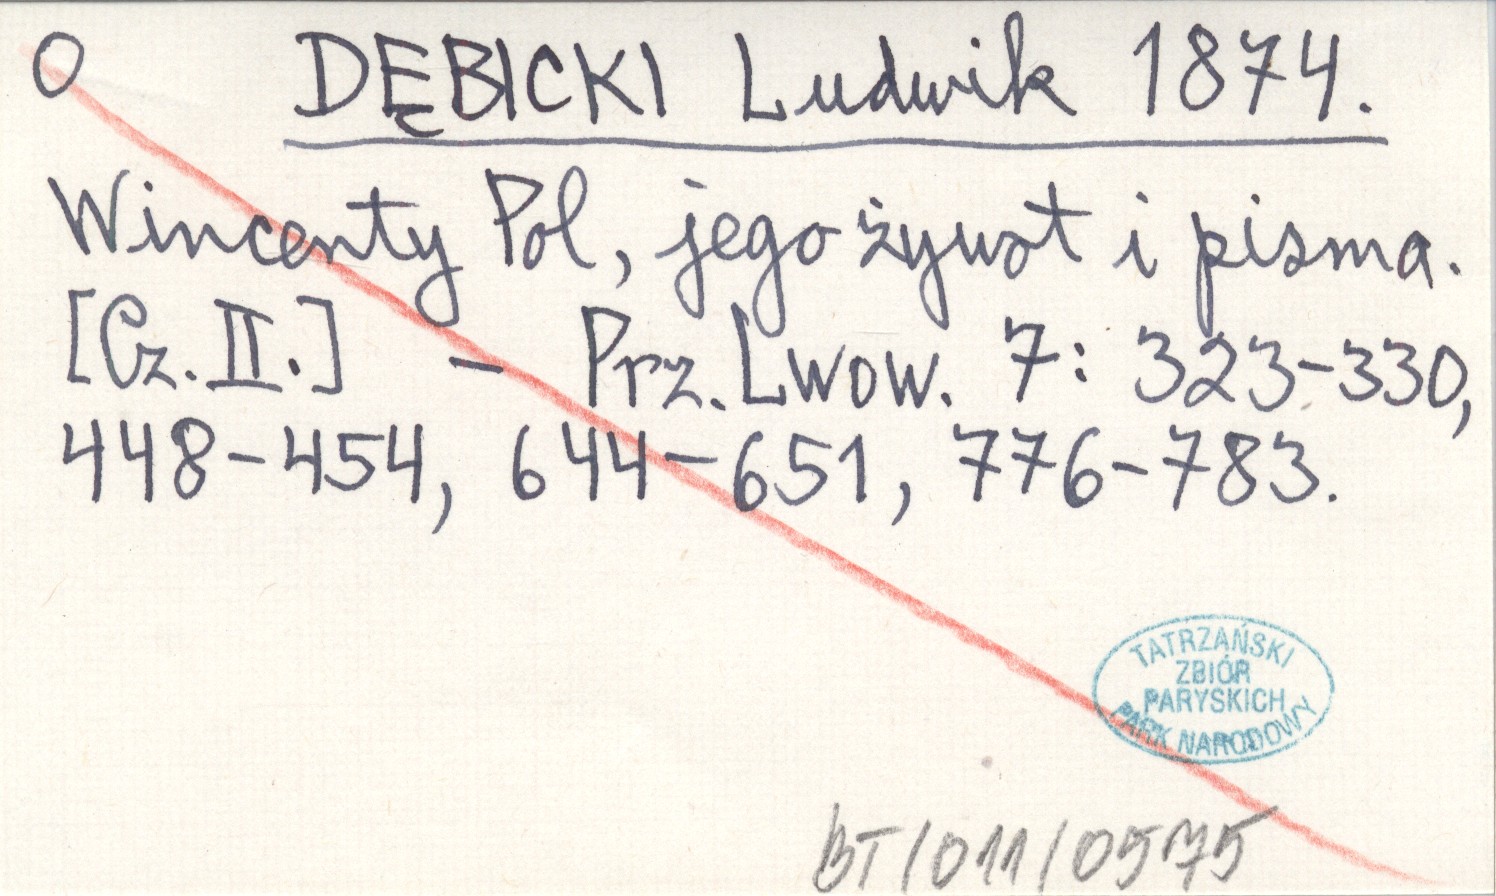 O DĘBICKI Ludwik 1874.
Wincenty Pol, jego żywot i pisma.
[Cz. II.] – Prz. Lwow. 7: 323-330,
448-454, 644-651, 776-783.
TATRZAŃSKI
ZBIÓR
PARYSKICH
PARK NARODOWY
BT/011/0575